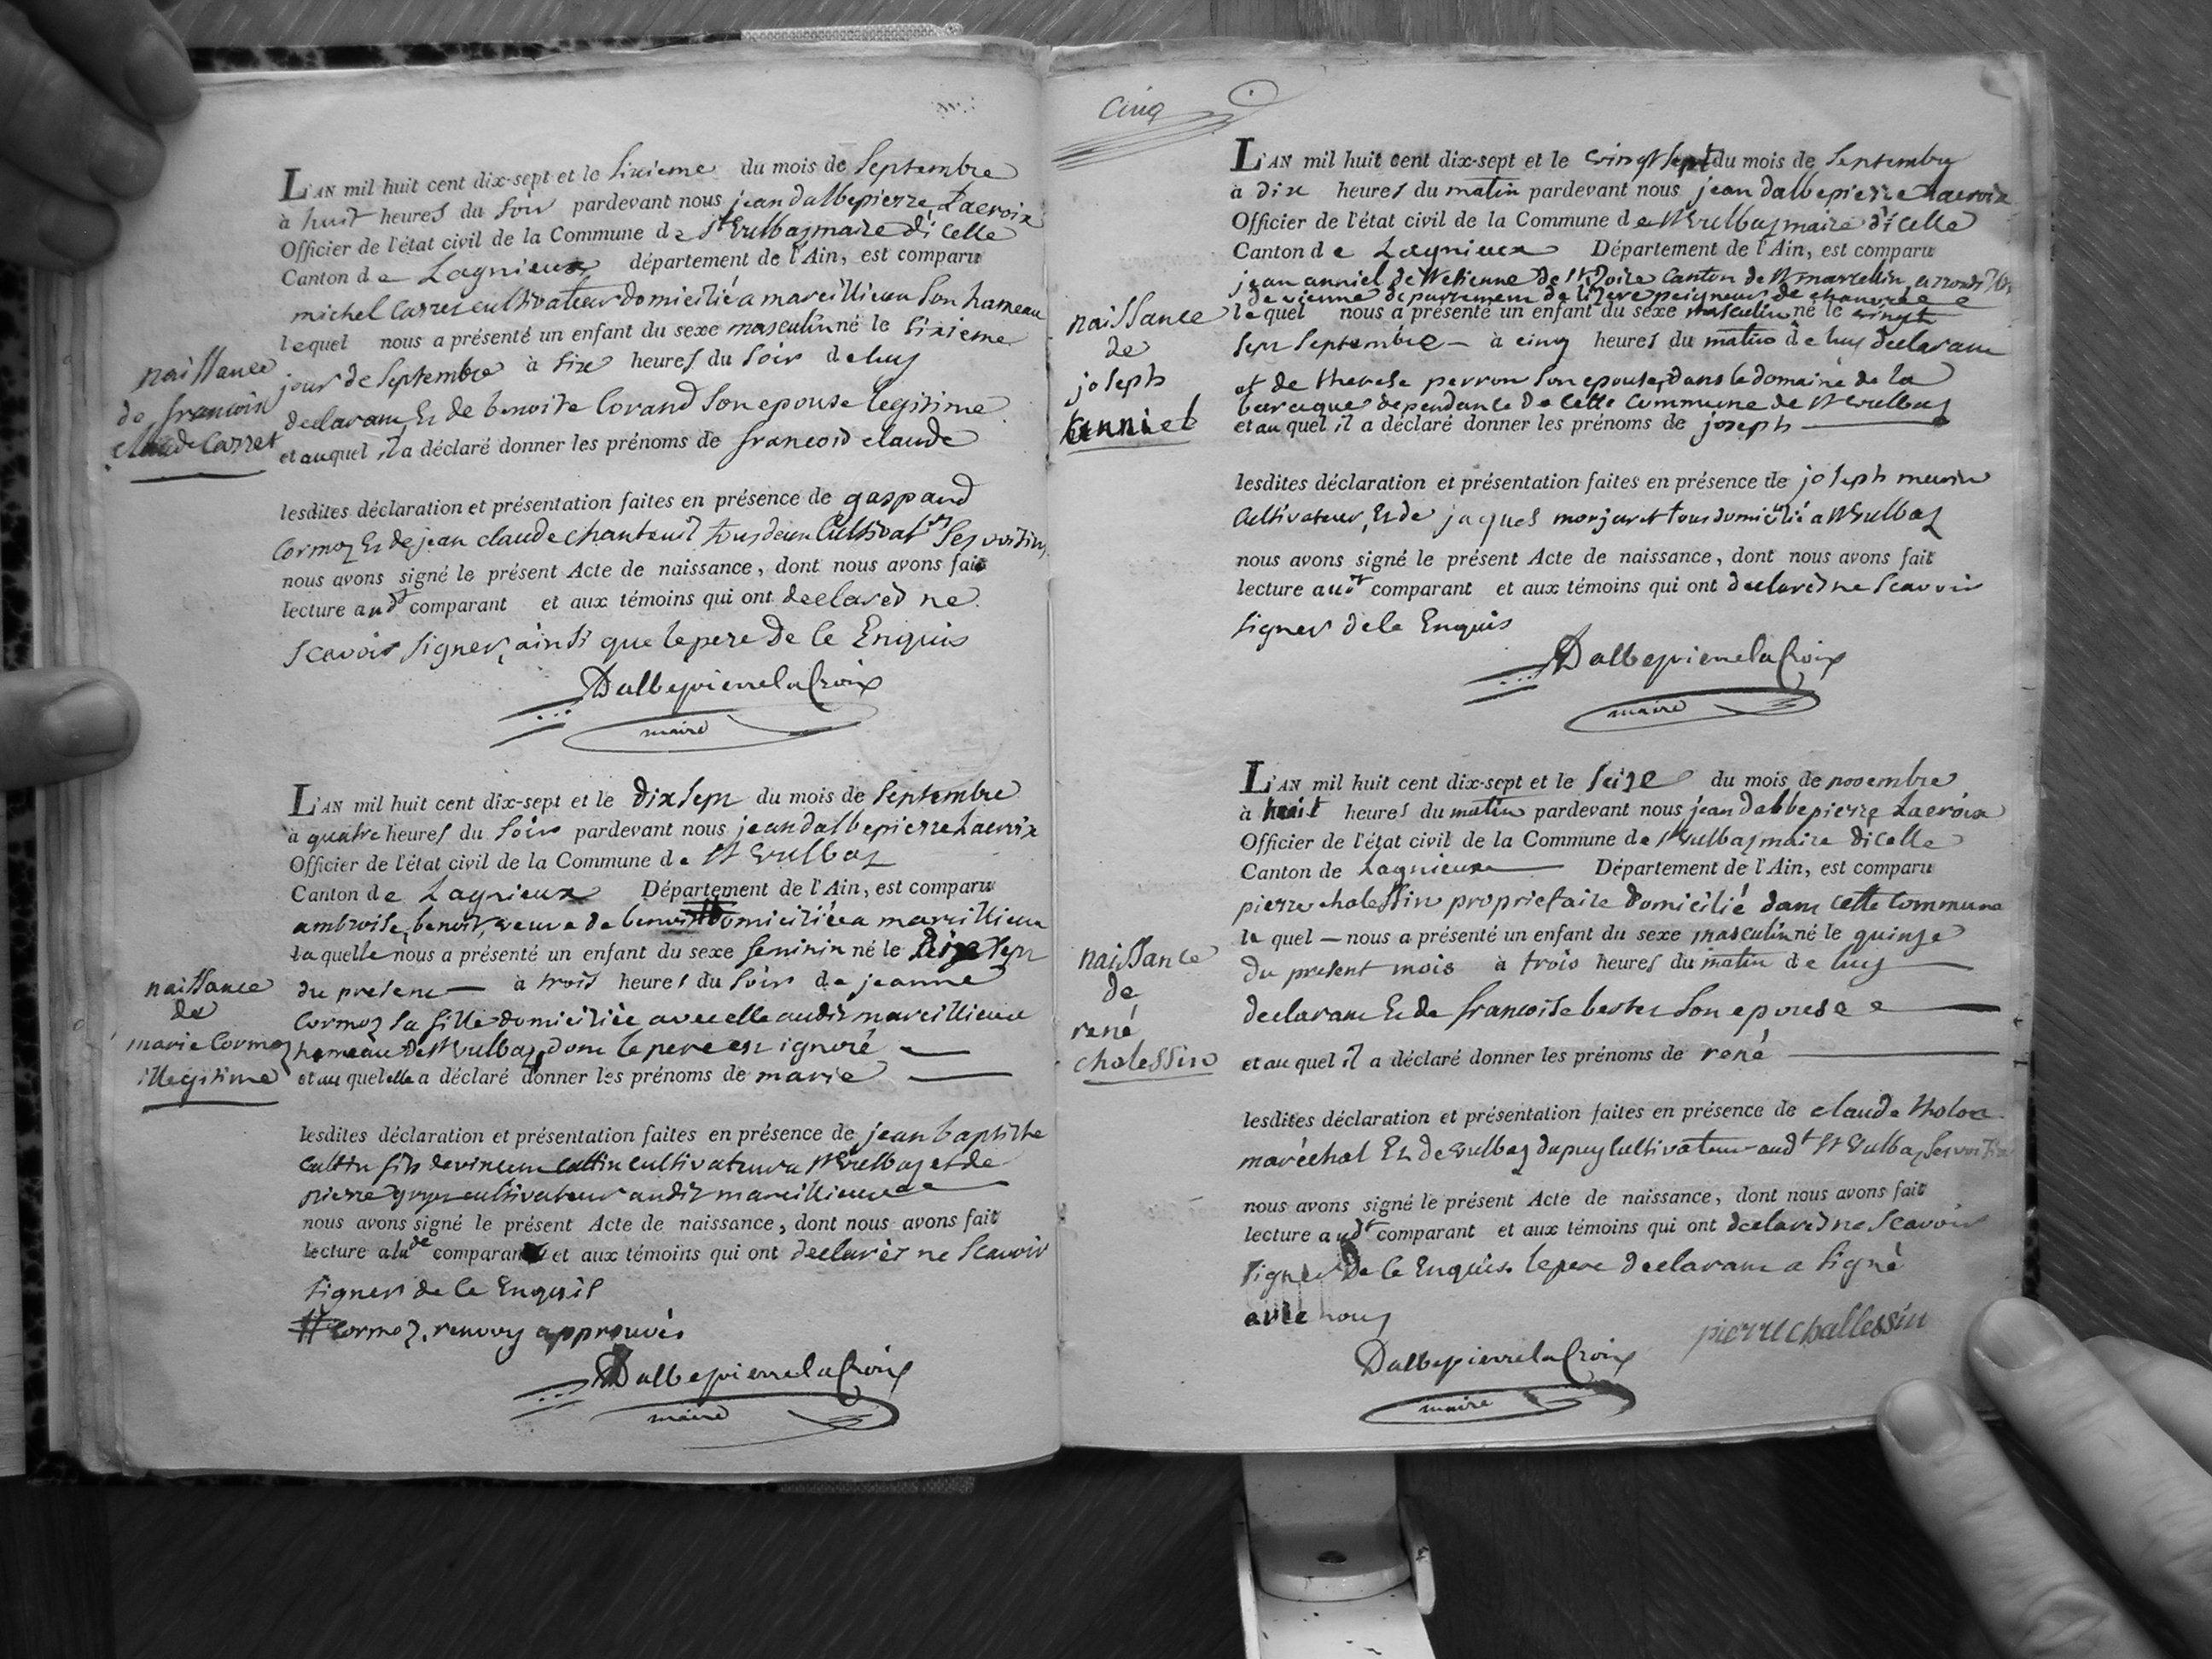 L'AN mil huit cent dix-sept et le sixieme du mois de Septembre
à huit heures du soir pardevant nous jean dalbepierre Lacroix
Officier de l'état civil de la Commune de St Vulbas maire dicelle
Canton de Lagnieux département de l'Ain, est comparu
michel Carret cultivateur domicilié a marcillieux son hameau
lequel nous a présenté un enfant du sexe masculin né le sixieme
jour de Septembre à six heures du soir de luy
declarant Et de benoite Corand son epouse legitime
et auquel il a déclaré donner les prénoms de francois claude
naissance
de francois
claude Carret
lesdites déclaration et présentation faites en présence de gaspard
Cormoz Et de jean claude chanteur tous deux Cultivatrs Ses voisins
nous avons signé le présent Acte de naissance, dont nous avons fait
lecture audt comparant et aux témoins qui ont declarés ne
scavoir signer, ainsi que le pere de ce Enquis
Dalbepierrelacroix
maire
L'AN mil huit cent dix-sept et le dix sept du mois de Septembre
à quatre heures du soir pardevant nous jean dalbepierre Lacroix
Officier de l'état civil de la Commune de St Vulbas
Canton de Lagnieux Département de l'Ain, est comparu
ambroise benoit, veuve de benoit # domiciliée a marcillieux
laquelle nous a présenté un enfant du sexe feminin né le dixe sept
du present à trois heures du soir de jeanne
Cormoz sa fille domiciliée avec elle audit marcillieux
hameau de St Vulbas, dont le pere est ignoré
et au quel elle a déclaré donner les prénoms de marie
naissance
de
marie Cormoz
illegitime
lesdites déclaration et présentation faites en présence de jean baptiste
Cattin fils de vincent Cattin cultivateur a St Vulbas et de
pierre cultivateur audit marcillieux
nous avons signé le présent Acte de naissance, dont nous avons fait
lecture a lade comparant et aux témoins qui ont declarés ne Scavoir
signer de ce Enquis
# Cormoz, renvoy approuvés
Dalbepierrelacroix
maire
cinq
L'AN mil huit cent dix-sept et le vingt sept du mois de Septembre
à dix heures du matin pardevant nous jean dalbepierre Lacroix
Officier de l'état civil de la Commune de St Vulbas maire d'icelle
Canton de Lagnieux Département de l'Ain, est comparu
jean anniel de Canton de St marcellin,
de vienne departement de lizere peigneur de chanvre
lequel nous a présenté un enfant du sexe masculin né le vingt
sept Septembre à cinq heures du matin de luy declarant
et de therese perron son epouse, dans le domaine de la
baraque dependance de cette Commune de St Vulbas
et au quel il a déclaré donner les prénoms de joseph
naissance
de
joseph
anniel
lesdites déclaration et présentation faites en présence de joseph
Cultivateur, Et de jaques morjaret tous domicilié a St Vulbas
nous avons signé le présent Acte de naissance, dont nous avons fait
lecture audt comparant et aux témoins qui ont declarés ne Scavoir
signer de ce Enquis
Dalbepierrelacroix
maire
L'AN mil huit cent dix-sept et le seize du mois de novembre
à huit heures du matin pardevant nous jean dalbepierre Lacroix
Officier de l'état civil de la Commune de St Vulbas maire dicelle
Canton de Lagnieux Département de l'Ain, est comparu
pierre cholessin proprietaire domicilié dans cette Commune
le quel nous a présenté un enfant du sexe masculin né le quinze
du present mois à trois heures du matin de luy
declarant Et de francoise son epouse
et au quel il a déclaré donner les prénoms de rené
naissance
de
rené
cholessin
lesdites déclaration et présentation faites en présence de claude tholon
maréchal Et de Vulbas dupuy Cultivateur audt St Vulbas, Ses voisins
nous avons signé le présent Acte de naissance, dont nous avons fait
lecture audt comparant et aux témoins qui ont declarés ne Scavoir
signer de ce Enquis. le pere declarant a signé
avec nous
pierre challessin
Dalbepierrelacroix
maire